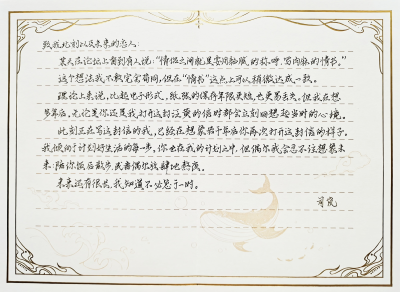 致我此刻以及未来的恋人:
某人在论坛上看到有人说:“情侣之间就是要用肉麻的称呼,写肉麻的情书。”
这个想法我不敢完全苟同,但在“情书”这点上可以稍微达成一致。
理论上来说,比起电子形式,纸张的保存年限更短,也更易丢失。但我在想
多年后,无论是你还是我,打开这封泛黄的信时都会立刻回想起当时的心境。
此刻正在写这封信的我,已经在想象若干年后你再次打开这封信的样子。
我倾向于计划好生活的每一步,你也在我的计划之中,但偶尔我会忍不住想象未
来,陪你饭后散步,或者偶尔放肆地熬夜。
未来还有很长,我知道不必急于一时。